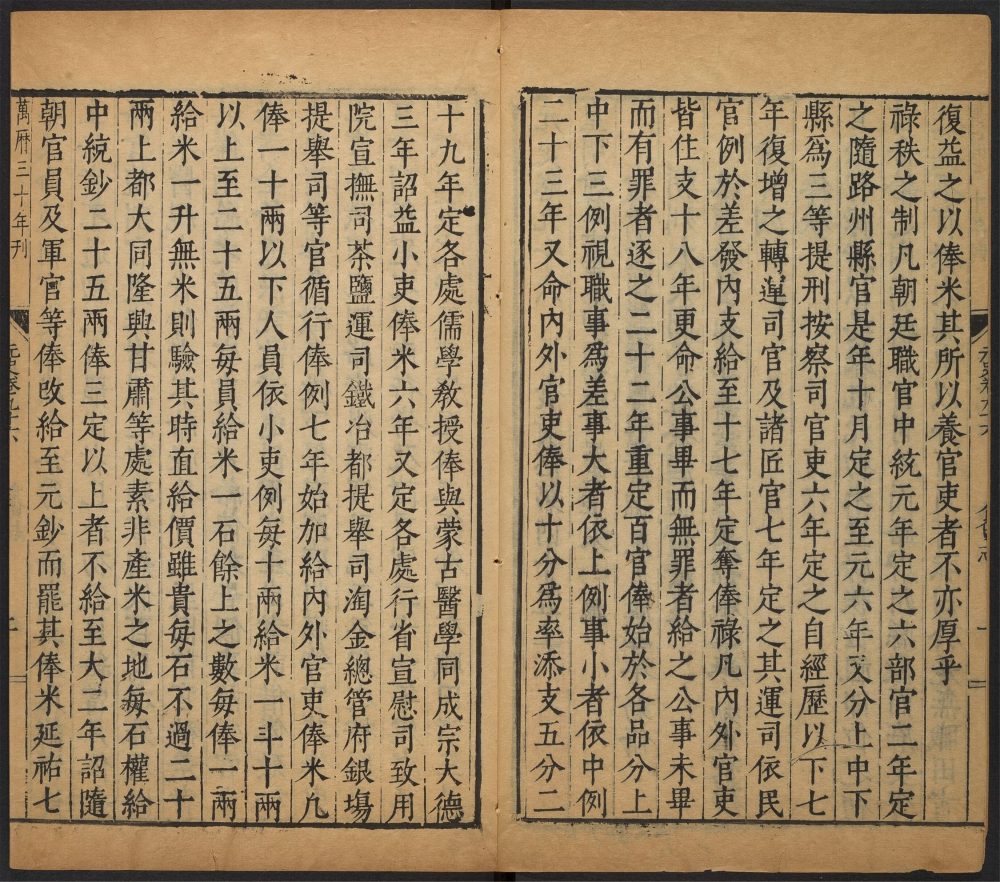 復益之以俸米其所以養官吏者不亦厚乎
祿秩之制凡朝廷職官中統元年定之六部官二年定
之隨路州縣官是年十月定之至元六年又分上中下
縣爲三等提刑按察司官吏六年定之自經歷以下七
年復增之轉運司官及諸匠官七年定之其運司依民
官例於差發內支給至十七年定奪俸祿凡內外官吏
皆住支十八年更命公事畢而無罪者給之公事未畢
而有罪者逐之二十二年重定百官俸始於各品分上
中下三例視職事爲差事大者依上例事小者依中例
二十三年又命內外官吏俸以十分爲率添支五分二
十九年定各處儒學敎授俸與蒙古醫學同成宗大德
三年詔益小吏俸米六年又定各處行省宣慰司致用
院宣撫司茶鹽運司鐵冶都提舉司淘金總管府銀場
提舉司等官循行俸例七年始加給內外官吏俸米凡
俸一十兩以下人員依小吏例每十兩給米一斗十兩
以上至二十五兩每員給米一石餘上之數每俸一兩
給米一升無米則驗其時直給價雖貴每石不過二十
兩上都大同隆興甘肅等處素非產米之地每石權給
中統鈔二十五兩俸三定以上者不給至大二年詔隨
朝官員及軍官等俸改給至元鈔而罷其俸米延祐七
萬曆三十年刊
元史卷九十六